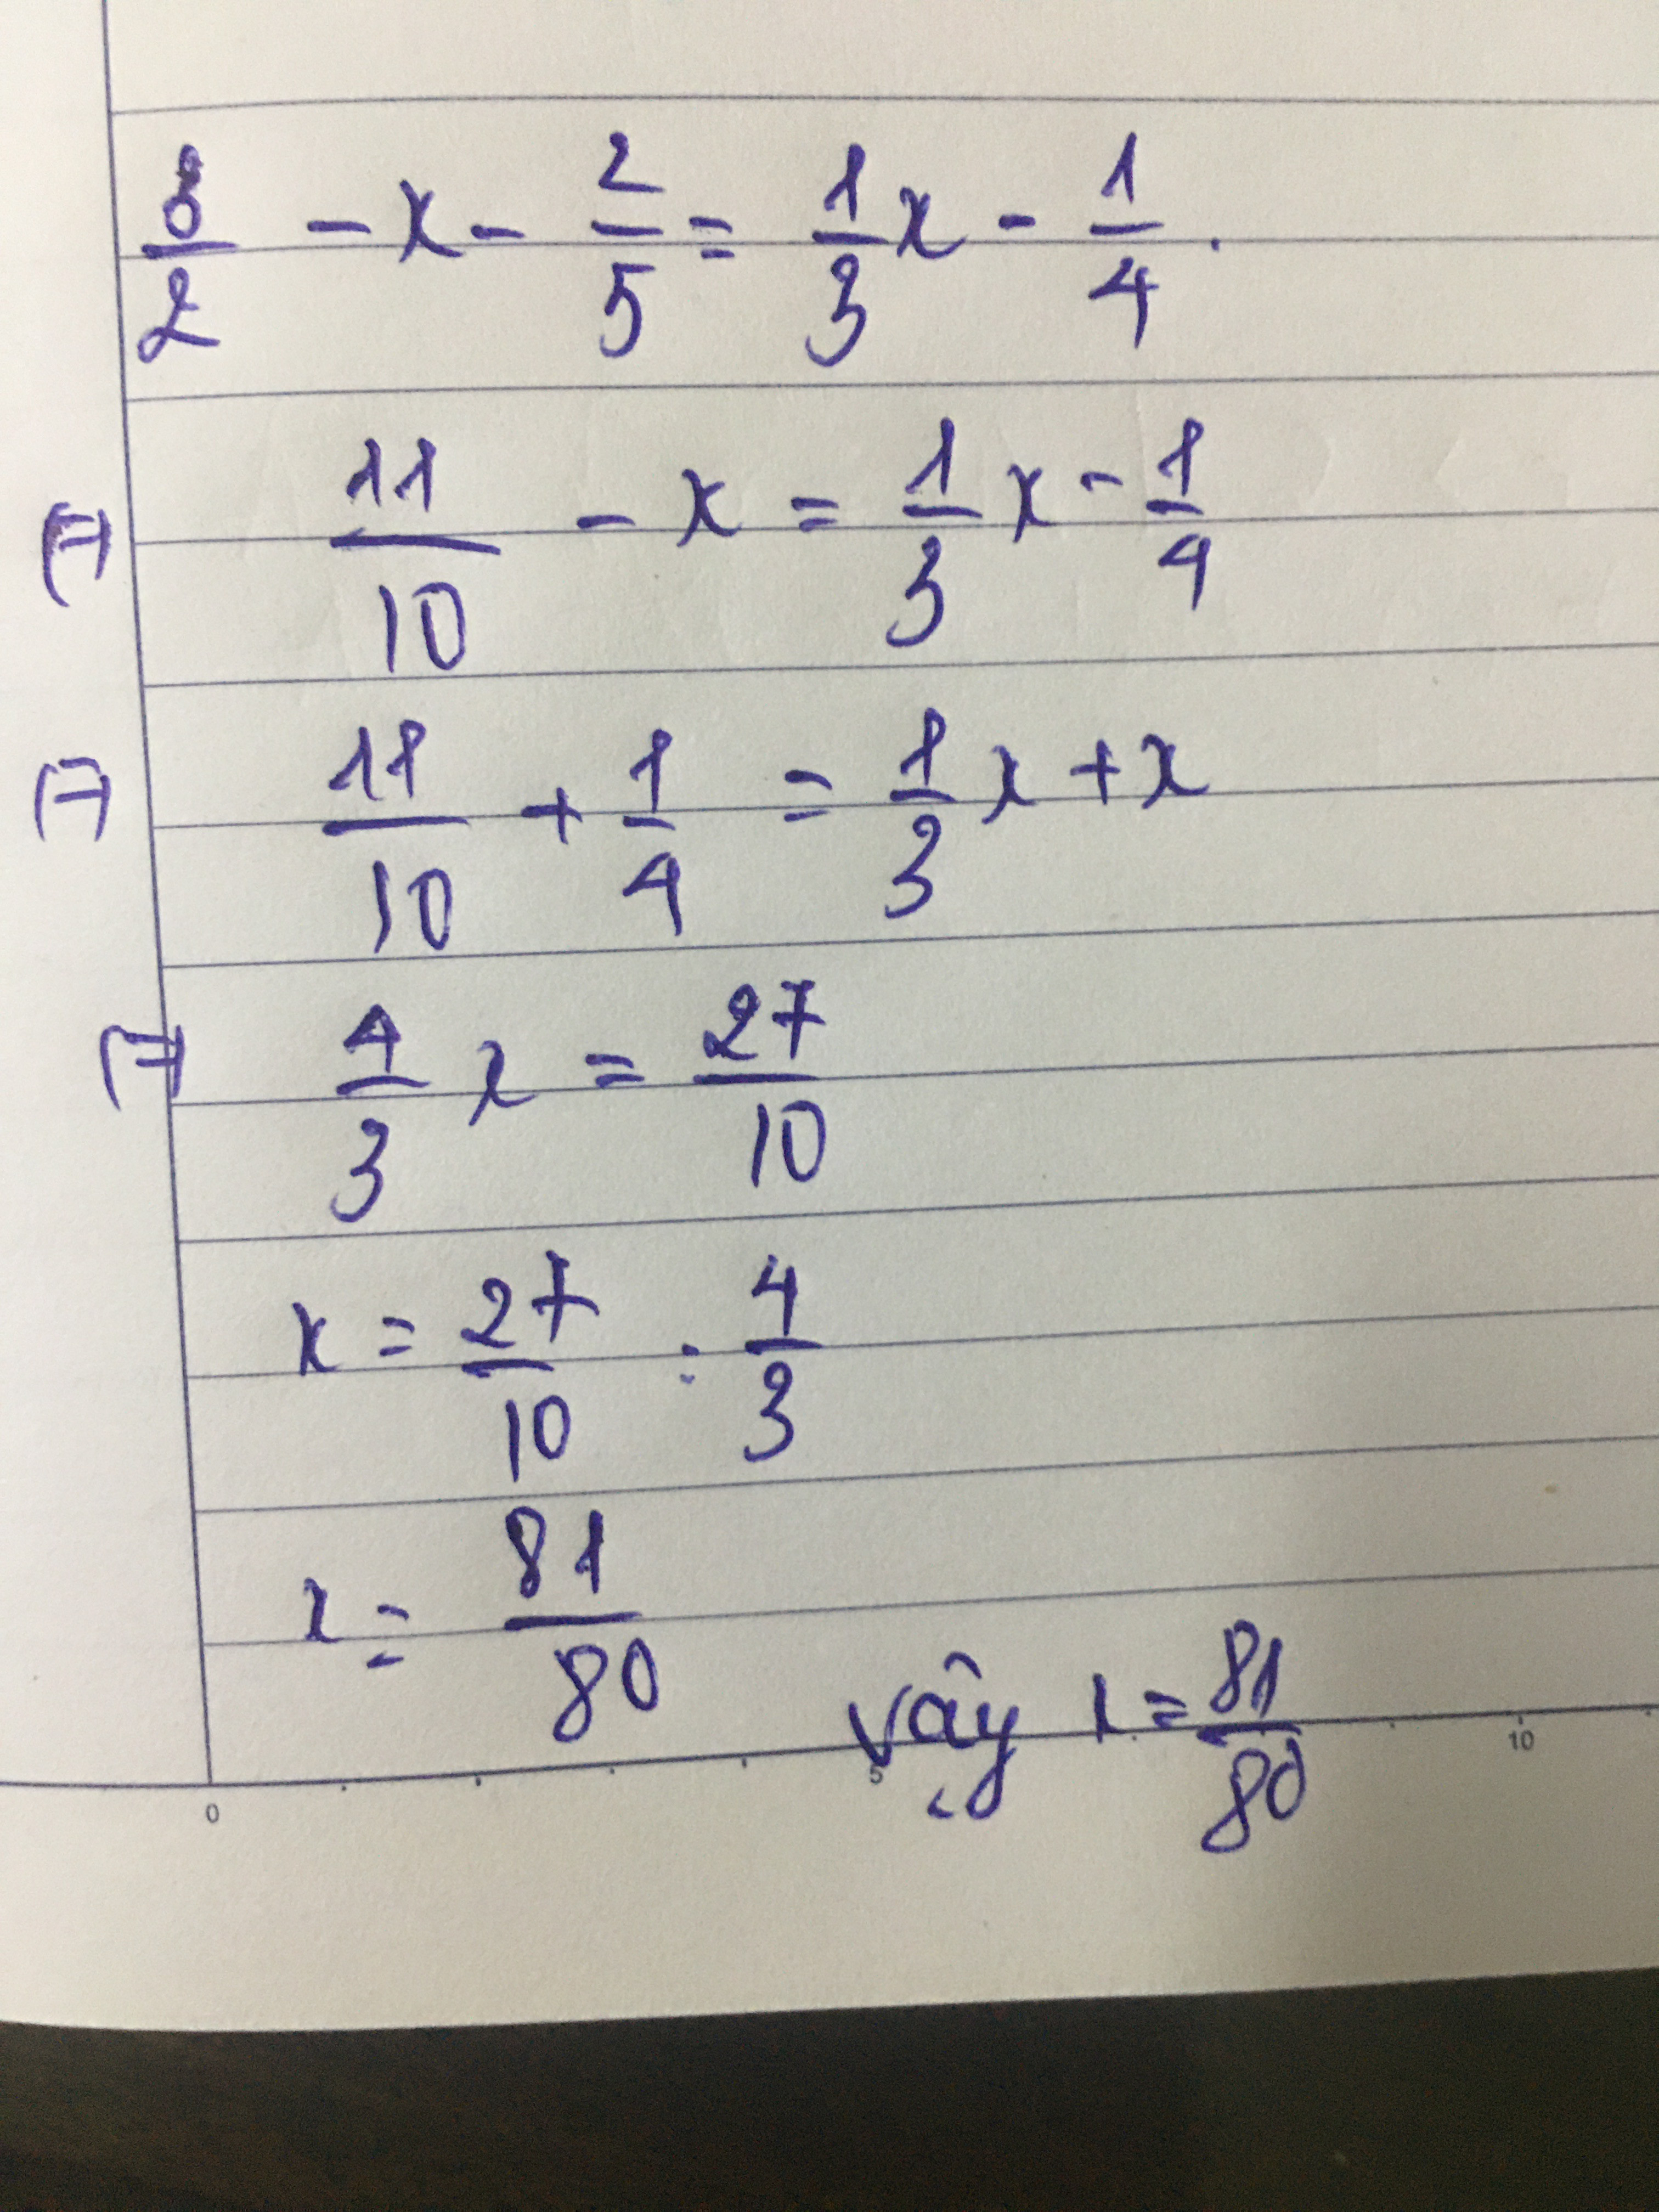 3/2 - x - 2/5 = 1/3 x - 1/4.
(=) 11/10 - x = 1/3 x - 1/4
(=) 11/10 + 1/4 = 1/3 x + x
(=) 4/3 x = 27/10
x = 27/10 : 4/3
x = 81/80
vậy x = 81/80
0 5 10